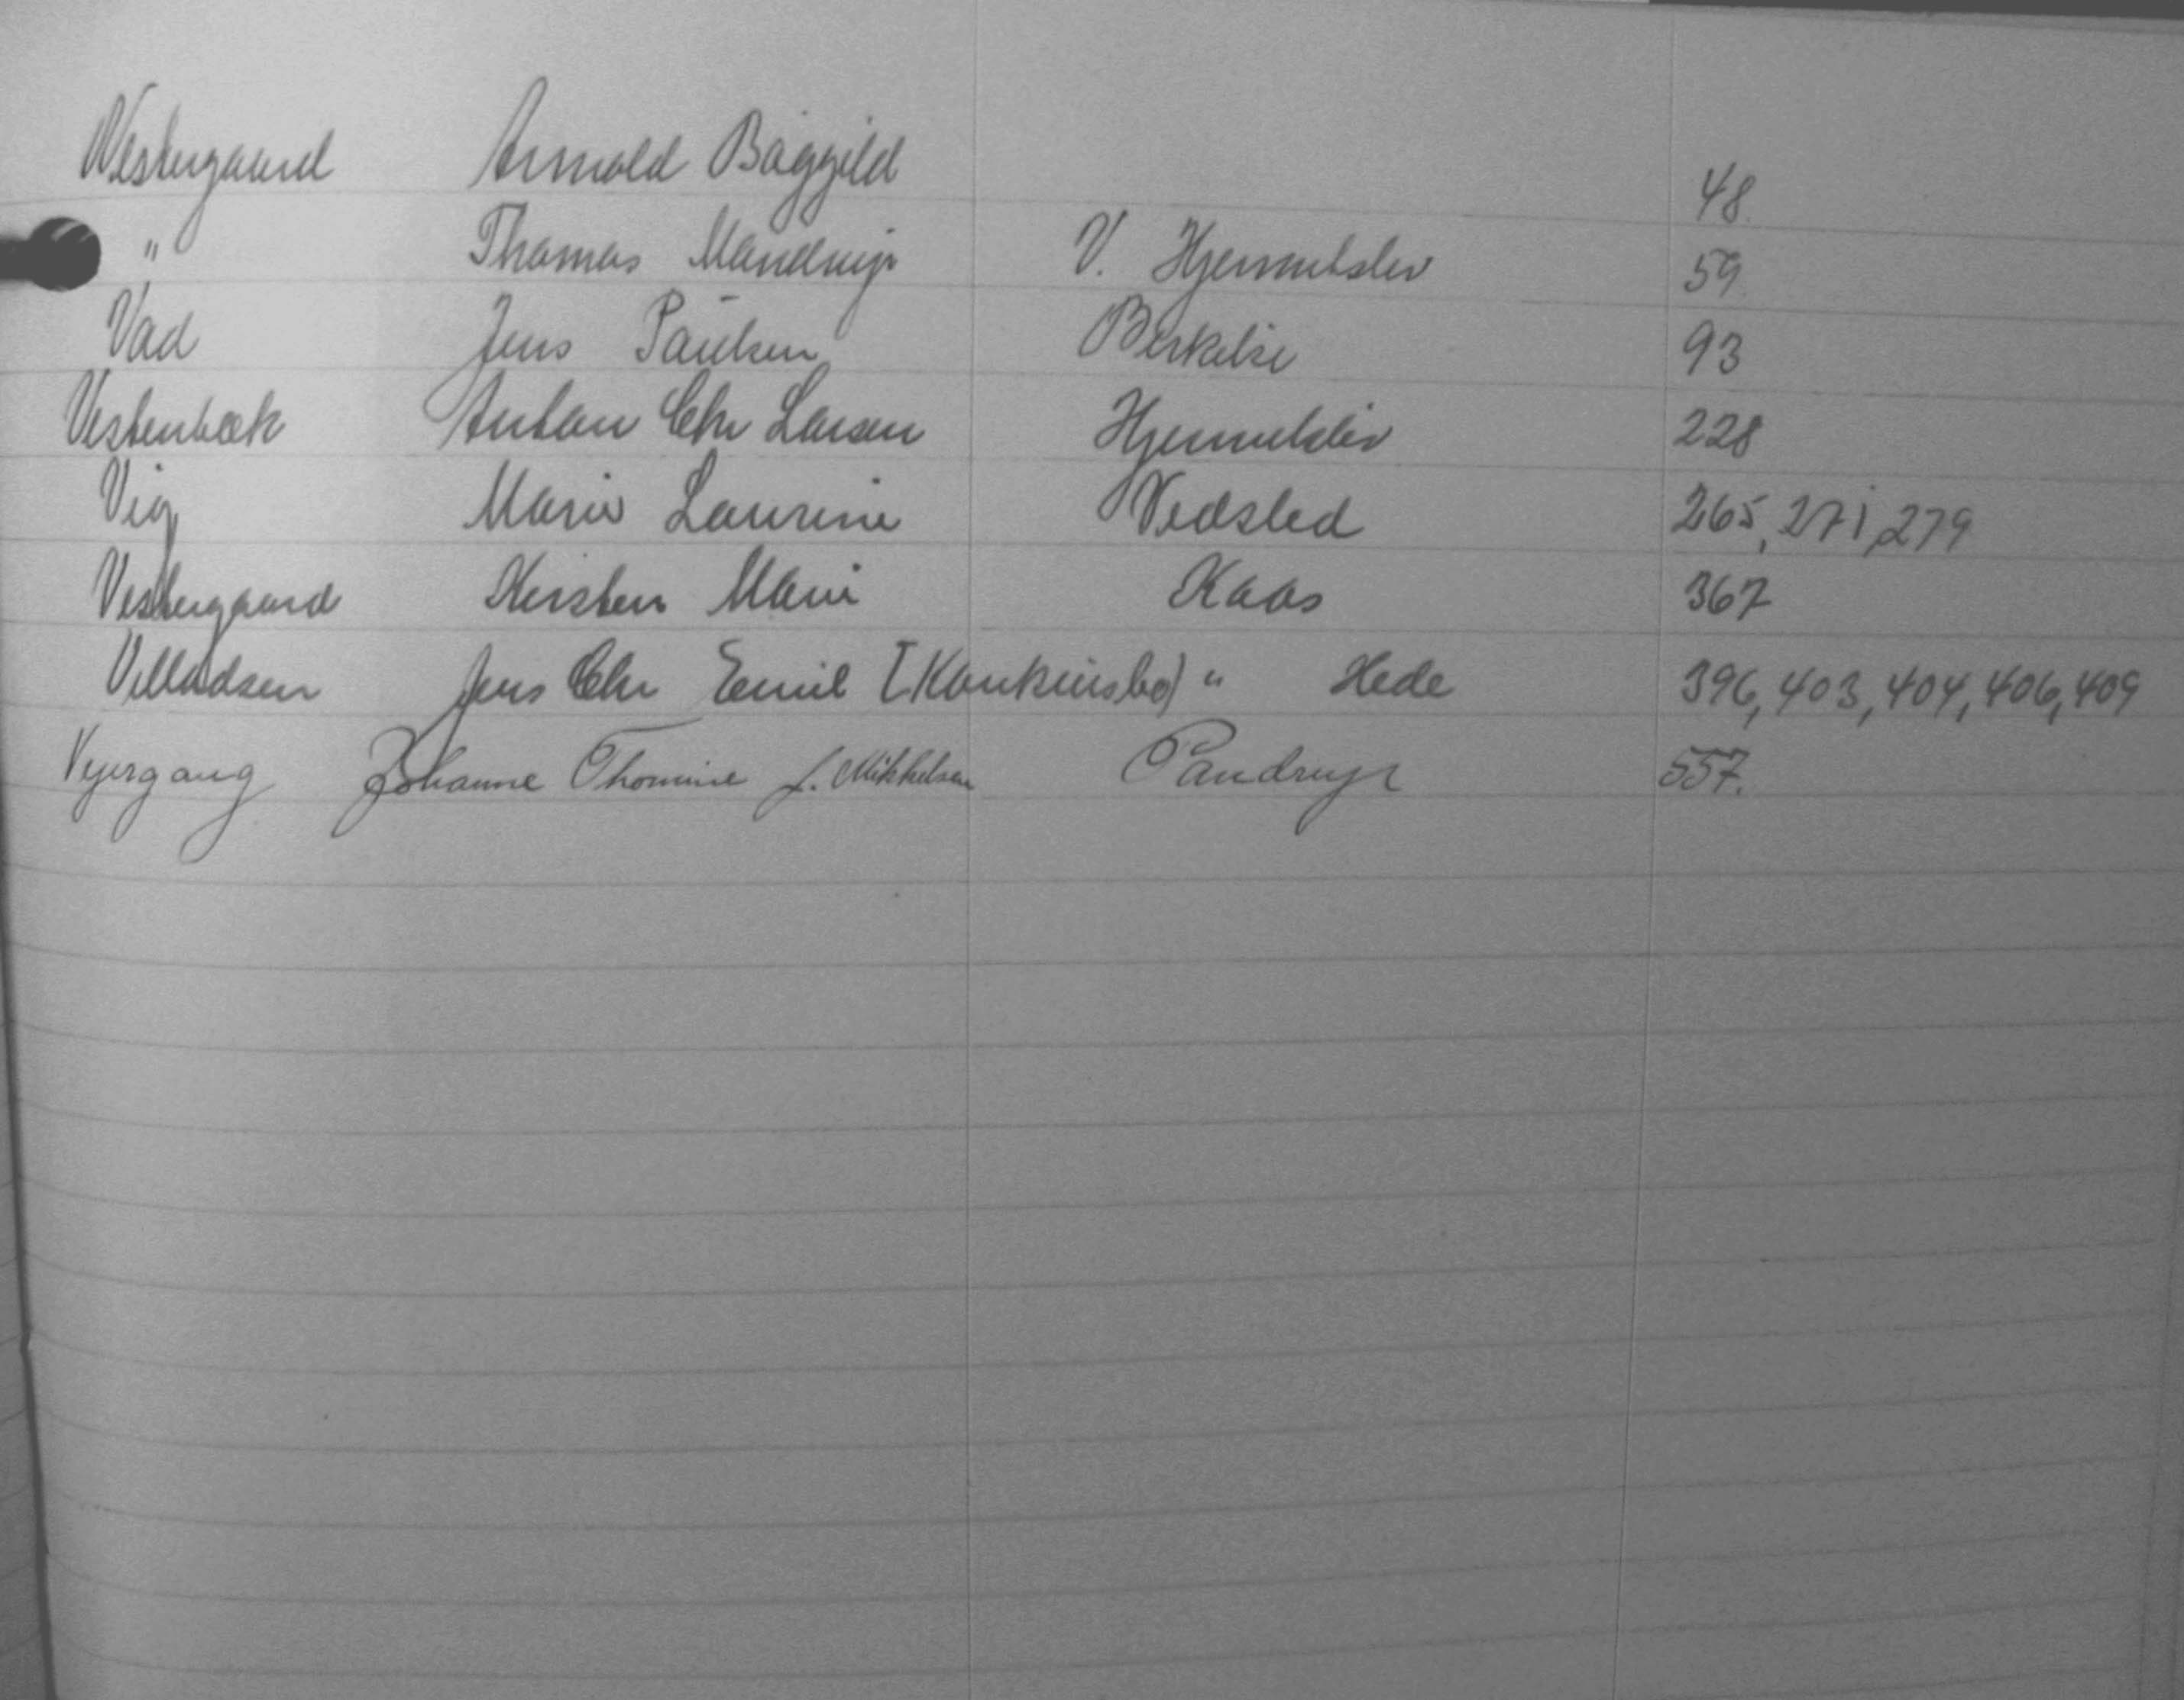 Westergaard Arnold Bøggild 48
" Thomas Mandrup V. Hjermitslev 59
Vad Jens Paulsen Birkelse 93
Vestenbæk Anton Chr Larsen Hjermitslev 228
Vig Marie Laurine Vedsted 265, 271, 279
Vestergaard Kirsten Marie Kaas 367
Villadsen Jens Chr Emil (Konkursbo) " Hede 396, 403, 404, 406, 409
Vejergang Johanne Thomine f. Mikkelsen Pandrup 557.